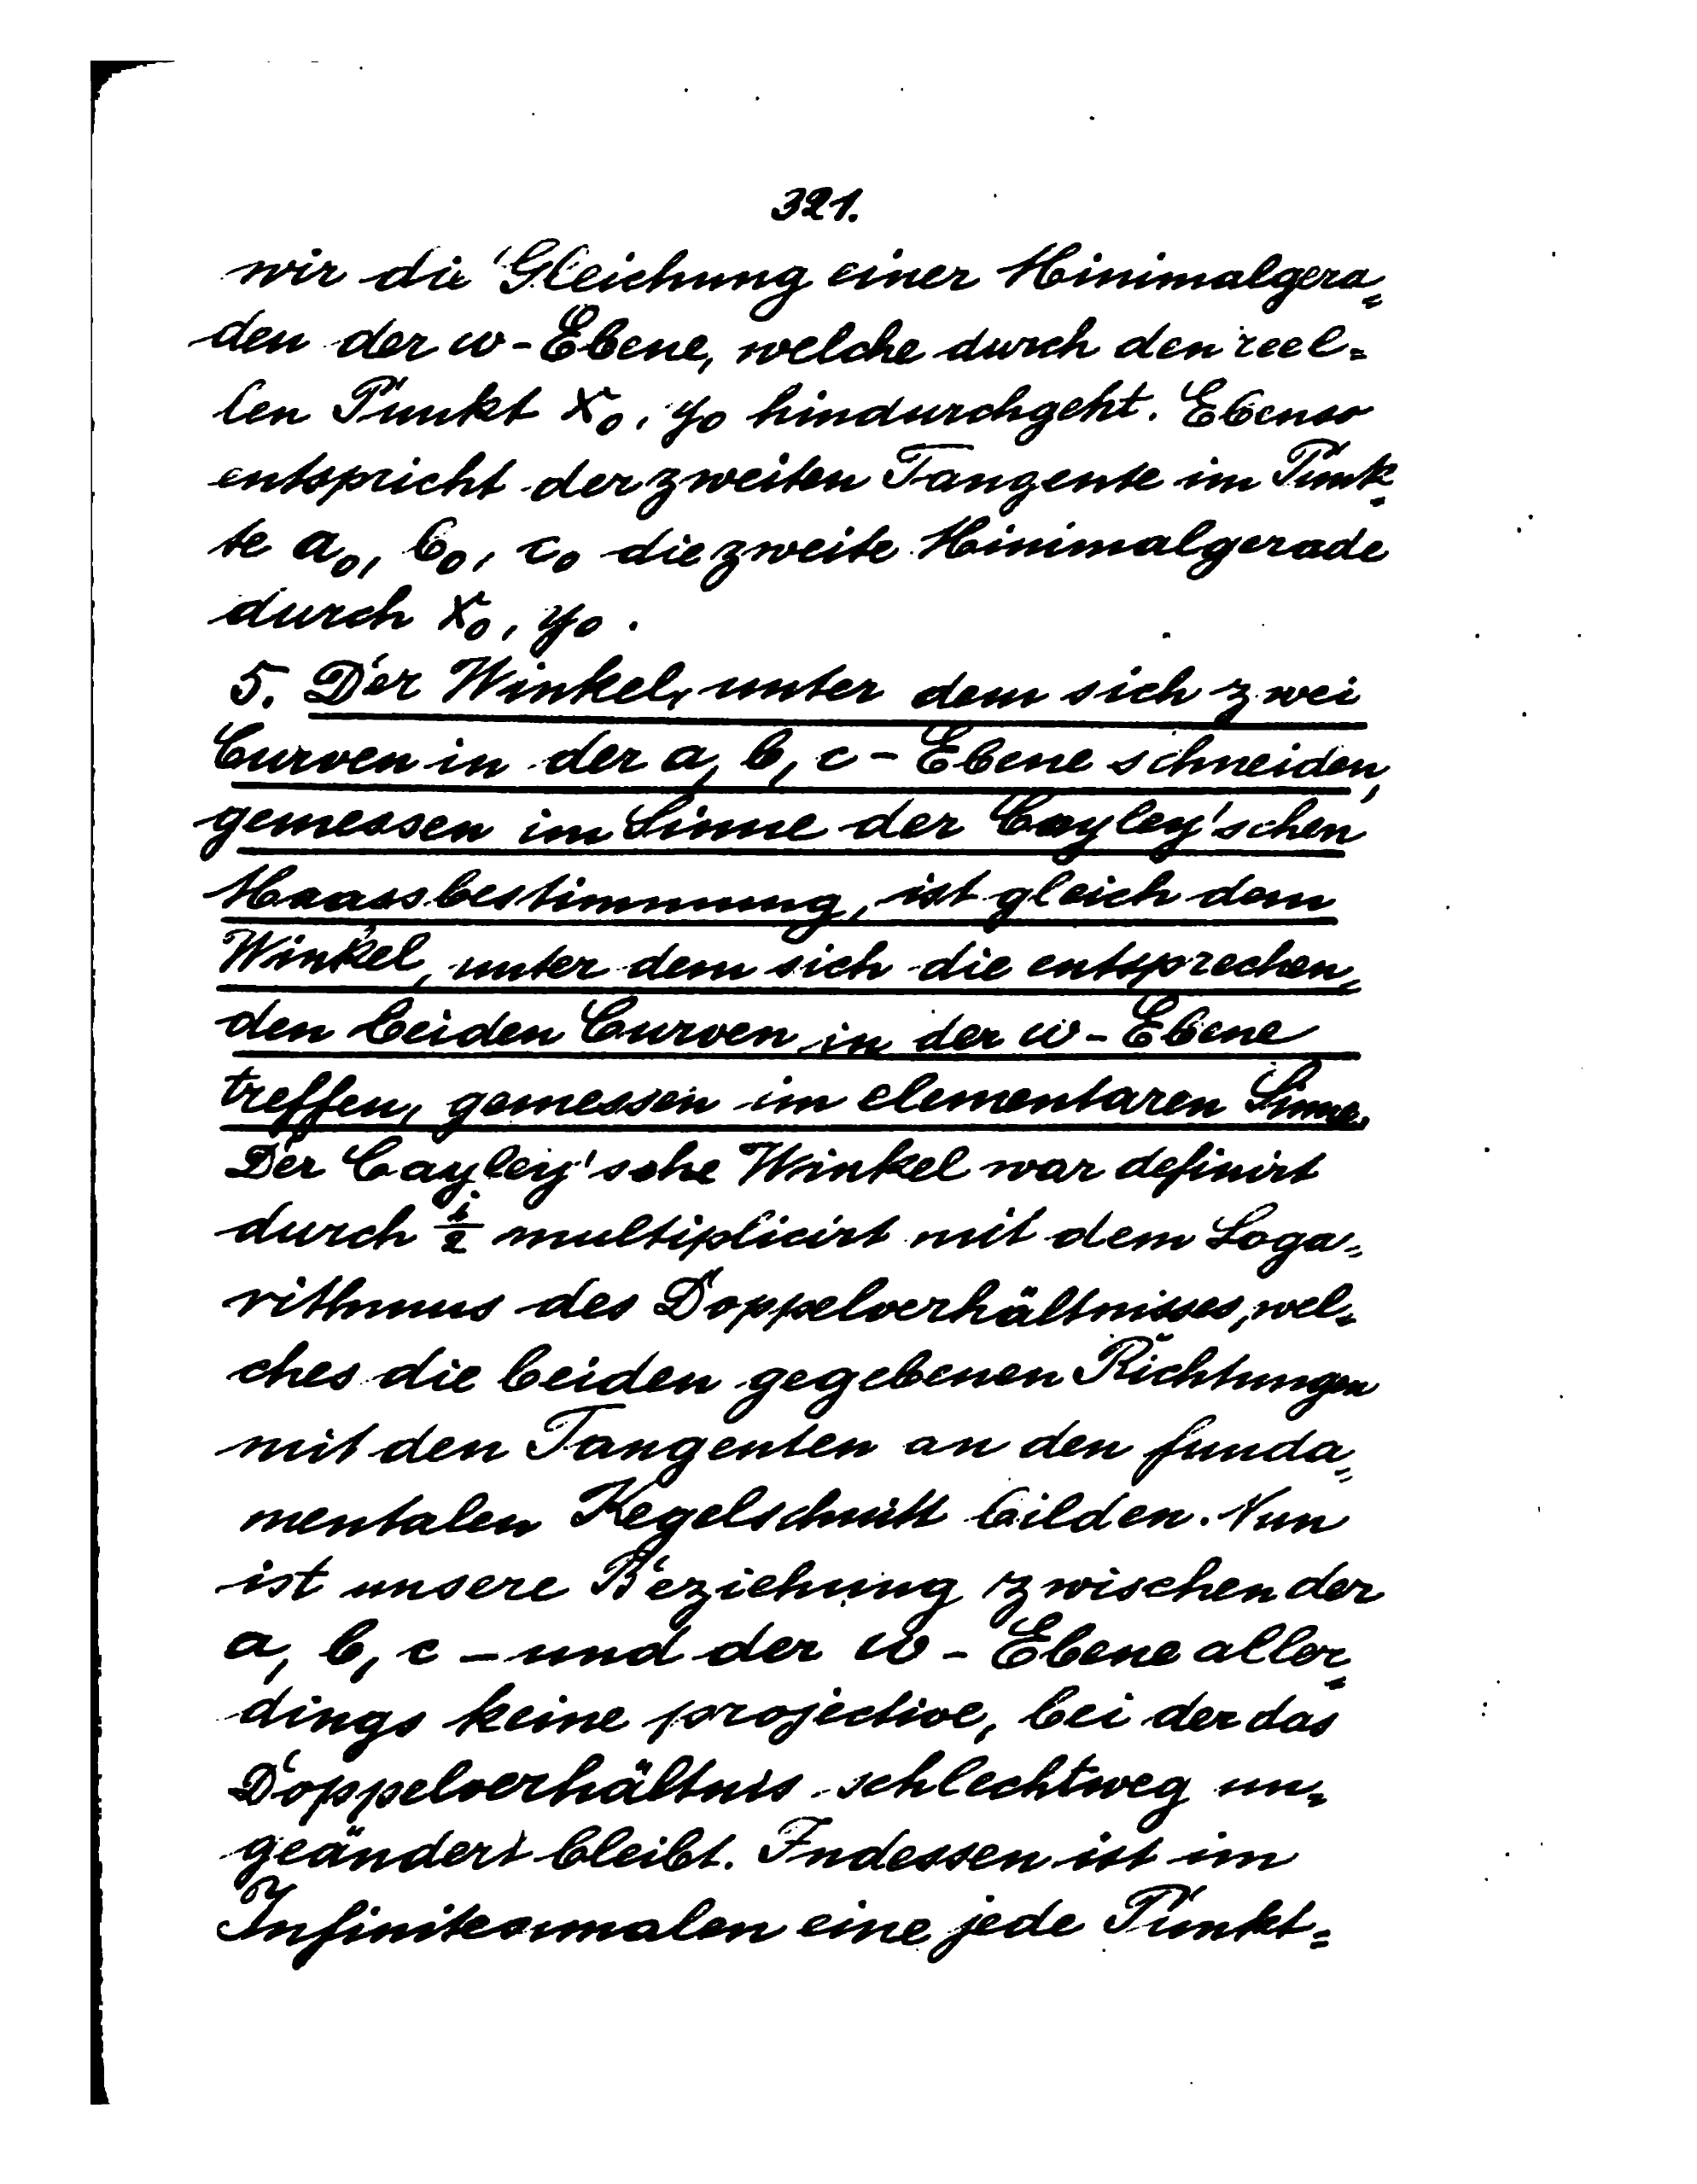 321.
wir die Gleichung einer Minimalgera=
den der w-Ebene, welche durch den reel=
len Punkt x₀, y₀ hindurchgeht. Ebenso
entspricht der zweiten Tangente im Punk=
te a₀, b₀, c₀ die zweite Minimalgerade
durch x₀, y₀.
5. Der Winkel, unter dem sich zwei
Curven in der a, b, c-Ebene schneiden,
gemessen im Sinne der Cayley'schen
Maassbestimmung, ist gleich dem
Winkel, unter dem sich die entsprechen=
den beiden Curven in der w-Ebene
treffen, gemessen im elementaren Sinne.
Der Cayley'sche Winkel war definirt
durch i/2 multiplicirt mit dem Loga=
rithmus des Doppelverhältnisses, wel=
ches die beiden gegebenen Richtungen
mit den Tangenten an den funda=
mentalen Kegelschnitt bilden. Nun
ist unsere Beziehung zwischen der
a, b, c - und der w-Ebene aller=
dings keine projective, bei der das
Doppelverhältnis schlechtweg un=
geändert bleibt. Indessen ist im
Infinitesimalen eine jede Punkt=